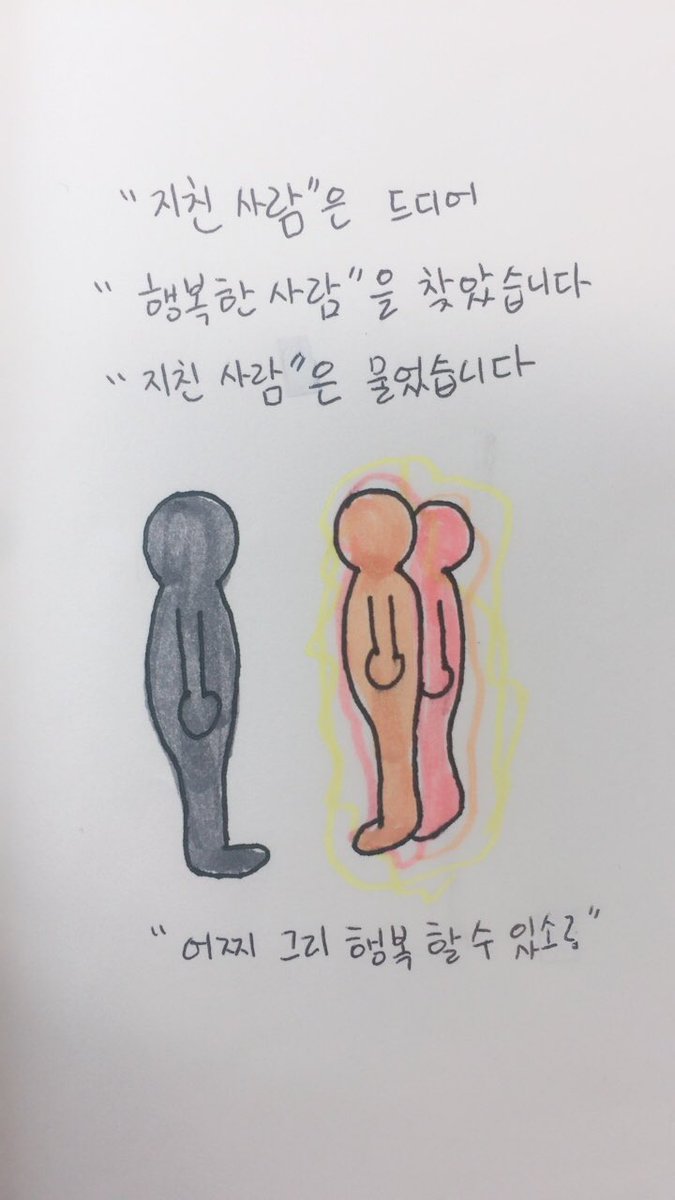 "지친 사람"은 드디어
"행복한 사람"을 찾았습니다
"지친 사람"은 물었습니다
"어찌 그리 행복 할 수 있소?"